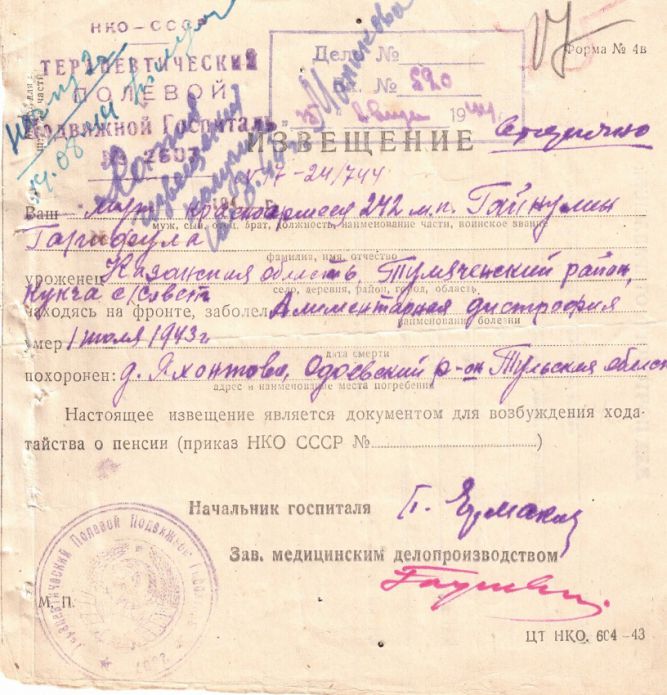 НКО - СССР
ТЕРАПЕВТИЧЕСКИЙ
ПОЛЕВОЙ
Подвижной Госпиталь
№ 2607
Дело №
№ 520
194
Форма № 4в
14.08.44
Копия
извещения
ИЗВЕЩЕНИЕ
17-24/744
Ваш муж красноармеец 242 м.п. Гайнулин
муж, сын, брат, должность, наименование части, воинское звание
Гарифула
фамилия, имя, отчество
уроженец Казанская область, Тумяченский район,
село, деревня, район, город, область
Кукча с/совет
находясь на фронте, заболел Алиментарная дистрофия
наименование болезни
умер 1 июля 1943г
дата смерти
похоронен: д. Яхонтово, Одоевский р-он Тульская област
адрес и наименование места погребения
Настоящее извещение является документом для возбуждения хода-
тайства о пенсии (приказ НКО СССР № )
Начальник госпиталя
Зав. медицинским делопроизводством
М. П.
Терапевтический Полевой Подвижной Госпиталь
2607
ЦТ НКО. 604-43